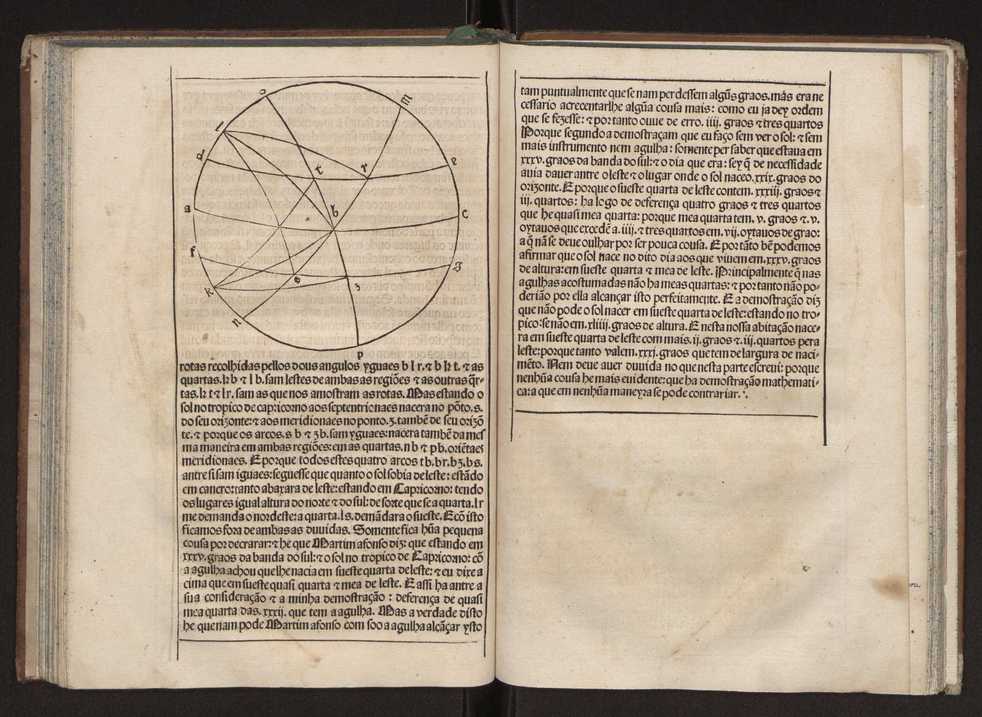 o
m
l
d
t
r
e
a
b
c
f
g
k
s
z
n
p
rotas recolhidas pellos dous angulos yguaes b l r. ⁊ b k t. ⁊ as
quartas. k b ⁊ l b. sam lestes de ambas as regiões ⁊ as outras q̃r-
tas. k t ⁊ l r. sam as que nos amostram as rotas. Mas estando o
sol no tropico de capricorno aos septentrionaes nacera no põto. s.
do seu orizonte: ⁊ aos meridionaes no ponto. z. tambẽ de seu orizõ
te. ⁊ porque os arcos. s b ⁊ z b. sam yguaes: nacera tambẽ da mes
ma maneira em ambas regiões: em as quartas. n b ⁊ p b. oriẽtaes
meridionaes. E porque todos estes quatro arcos t b. b r. b z. b s.
antre si sam iguaes: seguesse que quanto o sol sobia de leste: estãdo
em cancro: tanto abaxara de leste: estando em Capricorno: tendo
os lugares igual altura do norte ⁊ do sul: de sorte que se a quarta. l r
me demanda o nordeste: a quarta. l s. demãdara o sueste. E cõ isto
ficamos fora de ambas as duuidas. Somente fica hũa pequena
cousa por decrarar: ⁊ he que Martim afonso diz: que estando em
xxxv. graos da banda do sul: ⁊ o sol no tropico de Capricorno: cõ
a agulha achou que lhe nacia em sueste quarta de leste: ⁊ eu dixe a
cima que em sueste quasi quarta ⁊ mea de leste. E assi ha antre a
sua consideração ⁊ a minha demostração: deferença de quasi
mea quarta das. xxxij. que tem a agulha. Mas a verdade disto
he que nam pode Martim afonso com soo a agulha alcãçar ysto
tam puntualmente que se nam perdessem algũs graos. mas era ne
cessario acrecentarlhe algũa cousa mais: como eu ja dey ordem
que se fezesse: ⁊ por tanto ouue de erro. iiij. graos ⁊ tres quartos
Porque segundo a demostraçam que eu faço sem ver o sol: ⁊ sem
mais instrumento nem agulha: somente per saber que estaua em
xxxv. graos da banda do sul: ⁊ o dia que era: sey q̃ de necessidade
auia dauer antre o leste ⁊ o lugar onde o sol naceo. xxix. graos do
orizonte. E porque o sueste quarta de leste contem. xxxiij. graos ⁊
iij. quartos: ha logo de deferença quatro graos ⁊ tres quartos
que he quasi mea quarta: porque mea quarta tem. v. graos ⁊. v.
oytauos que excedẽ a. iiij. ⁊ tres quartos em. vij. oytauos de grao:
a q̃ nã se deue oulhar por ser pouca cousa. E por tãto bẽ podemos
afirmar que o sol nace no dito dia aos que viuem em. xxxv. graos
de altura: em sueste quarta ⁊ mea de leste. Principalmente q̃ nas
agulhas acostumadas não ha meas quartas: ⁊ por tanto não po-
derião por ella alcançar isto perfeitamente. E a demostração diz
que não pode o sol nacer em sueste quarta de leste: estando no tro-
pico: se não em. xliiij. graos de altura. E nesta nossa abitação nace-
ra em sueste quarta de leste com mais. ij. graos ⁊. iij. quartos pera
leste: porque tanto valem. xxxj. graos que tem de largura de naci-
mẽto. Nem deue auer duuida no que nesta parte escreui: porque
nenhũa cousa he mais euidente: que ha demostração mathemati-
ca: a que em nenhũa maneyra se pode contrariar.